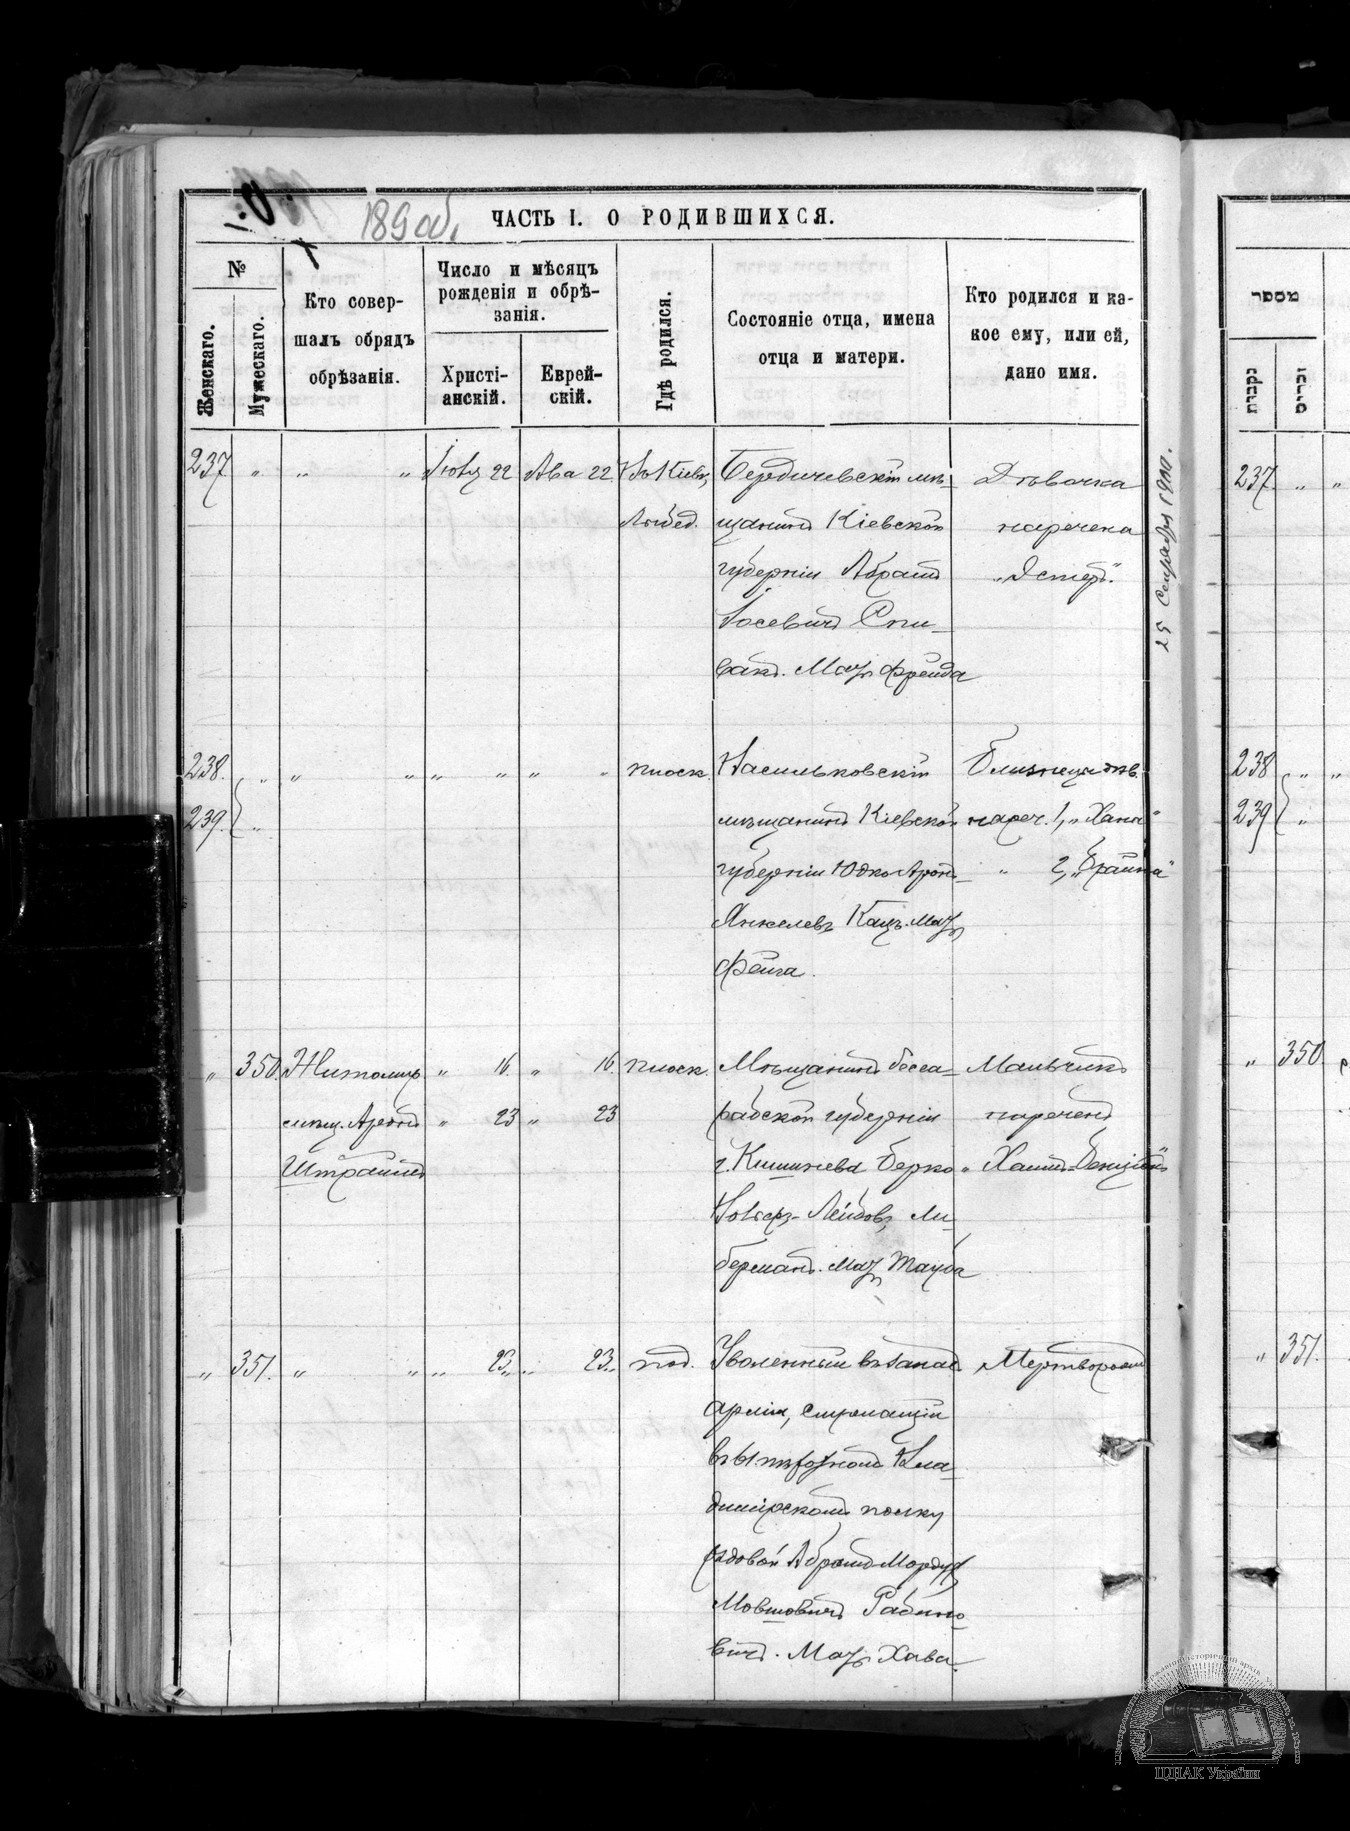 189 об.
ЧАСТЬ I. О РОДИВШИХСЯ.
№
Женскаго.
Мужескаго.
Кто совер-
шалъ обрядъ
обрѣзанія.
Число и мѣсяцъ
рожденія и обрѣ-
занія.
Христі-
анскій.
Еврей-
скій.
Гдѣ родился.
Состояніе отца, имена
отца и матери.
Кто родился и ка-
кое ему, или ей,
дано имя.
237 " " " Іюля 22 Ава 22 Въ Кіевѣ,
Лыбед.
Бердичевскій мѣ-
щанинъ Кіевской
губерніи Абрамъ
Іосевичъ Спи-
вакъ. Мать Фрейда
Дѣвочка
наречена
„Эстеръ“.
238. " " " " " " " плоск.
239. "
Васильковскій
мѣщанинъ Кіевской
губерніи Юдко Аронъ-
Янкелевъ Кацъ. Мать
Фейга.
близнецы дѣв.
нареч. 1, „Хана“
" 2, „Брайна“
" 350. Житомир. " 16. " 16. плоск.
мѣщ. Аронъ " 23 " 23
Мѣщанинъ Бесса-
рабской губерніи
г. Кишинева Берко-
Лейбовъ Ли-
берманъ. Мать Тауба
Мальчикъ
нареченъ
" 351. " " " 23. " 23. под.
Уволенный въ запасъ
арміи, служащій
въ 61 пѣхотномъ Вла-
димірскомъ полку
рядовой Абрамъ Мордух
Мовшовичъ Рабино-
вичъ. Мать Хава.
Мертворожд
25 Сентября 1900.
מספר
נקבות
זכרים
237. " "
238 " "
239 "
" 350
" 351.
ЦДІАК України